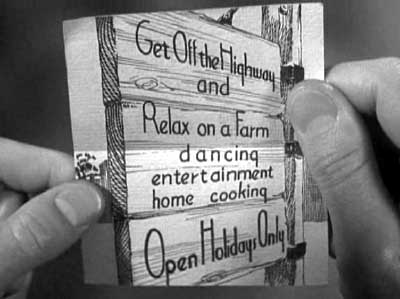 Get Off the Highway
and
Relax on a Farm
dancing
entertainment
home cooking
Open Holidays Only